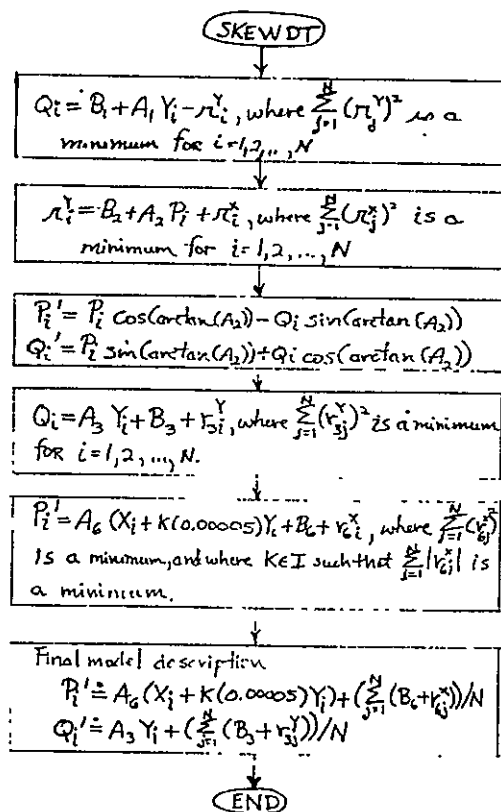 SKEWDT
Qi = B₁ + A₁ Yᵢ - rᵢʸ, where ∑ⱼ₌₁ᴺ (rⱼʸ)² is a
minimum for i=1,2,..., N
rᵢʸ = B₂ + A₂ Pᵢ + rᵢˣ, where ∑ⱼ₌₁ᴺ (rⱼˣ)² is a
minimum for i=1,2,...,N
Pᵢ' = Pᵢ cos(arctan(A₂)) - Qᵢ sin(arctan(A₂))
Qᵢ' = Pᵢ sin(arctan(A₂)) + Qᵢ cos(arctan(A₂))
Qᵢ = A₃ Yᵢ + B₃ + r₃ᵢʸ, where ∑ⱼ₌₁ᴺ (r₃ⱼʸ)² is a minimum
for i=1,2,...,N.
Pᵢ' = A₆ (Xᵢ + K(0.00005)Yᵢ + B₆ + r₆ᵢˣ, where ∑ⱼ₌₁ᴺ (r₆ⱼˣ)²
is a minimum, and where K∈I such that ∑ⱼ₌₁ᴺ |r₆ⱼˣ| is
a minimum.
Final model description
Pᵢ' ≐ A₆ (Xᵢ + K(0.00005)Yᵢ) + (∑ⱼ₌₁ᴺ (B₆ + r₆ⱼˣ))/N
Qᵢ' ≐ A₃ Yᵢ + (∑ⱼ₌₁ᴺ (B₃ + r₃ⱼʸ))/N
END